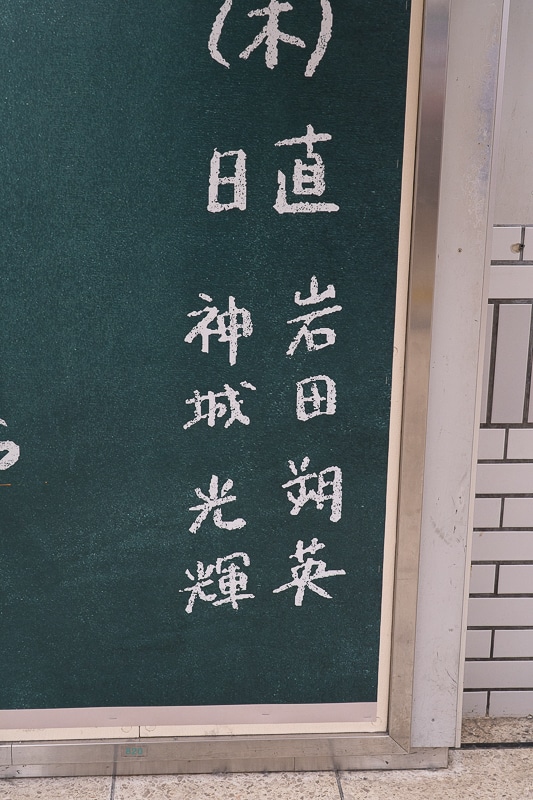 (木)
日直
岩田朔英
神城光輝